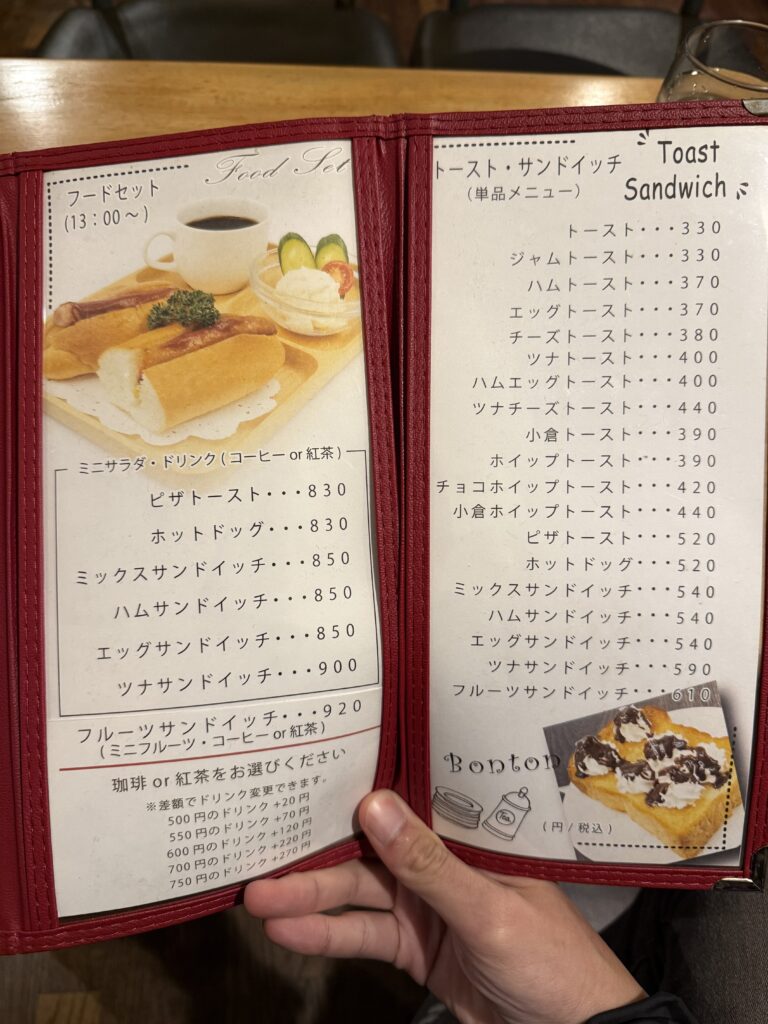 フードセット
(13：00～)
Food Set
ミニサラダ・ドリンク(コーヒー or 紅茶)
ピザトースト・・・830
ホットドッグ・・・830
ミックスサンドイッチ・・・850
ハムサンドイッチ・・・850
エッグサンドイッチ・・・850
ツナサンドイッチ・・・900
フルーツサンドイッチ・・・920
(ミニフルーツ・コーヒー or 紅茶)
珈琲 or 紅茶をお選びください
※差額でドリンク変更できます。
500円のドリンク +20円
550円のドリンク +70円
600円のドリンク +120円
700円のドリンク +220円
750円のドリンク +270円
トースト・サンドイッチ
(単品メニュー)
Toast
Sandwich
トースト・・・330
ジャムトースト・・・330
ハムトースト・・・370
エッグトースト・・・370
チーズトースト・・・380
ツナトースト・・・400
ハムエッグトースト・・・400
ツナチーズトースト・・・440
小倉トースト・・・390
ホイップトースト・・・390
チョコホイップトースト・・・420
小倉ホイップトースト・・・440
ピザトースト・・・520
ホットドッグ・・・520
ミックスサンドイッチ・・・540
ハムサンドイッチ・・・540
エッグサンドイッチ・・・540
ツナサンドイッチ・・・590
フルーツサンドイッチ・・・610
Bonton
Tea
(円/税込)